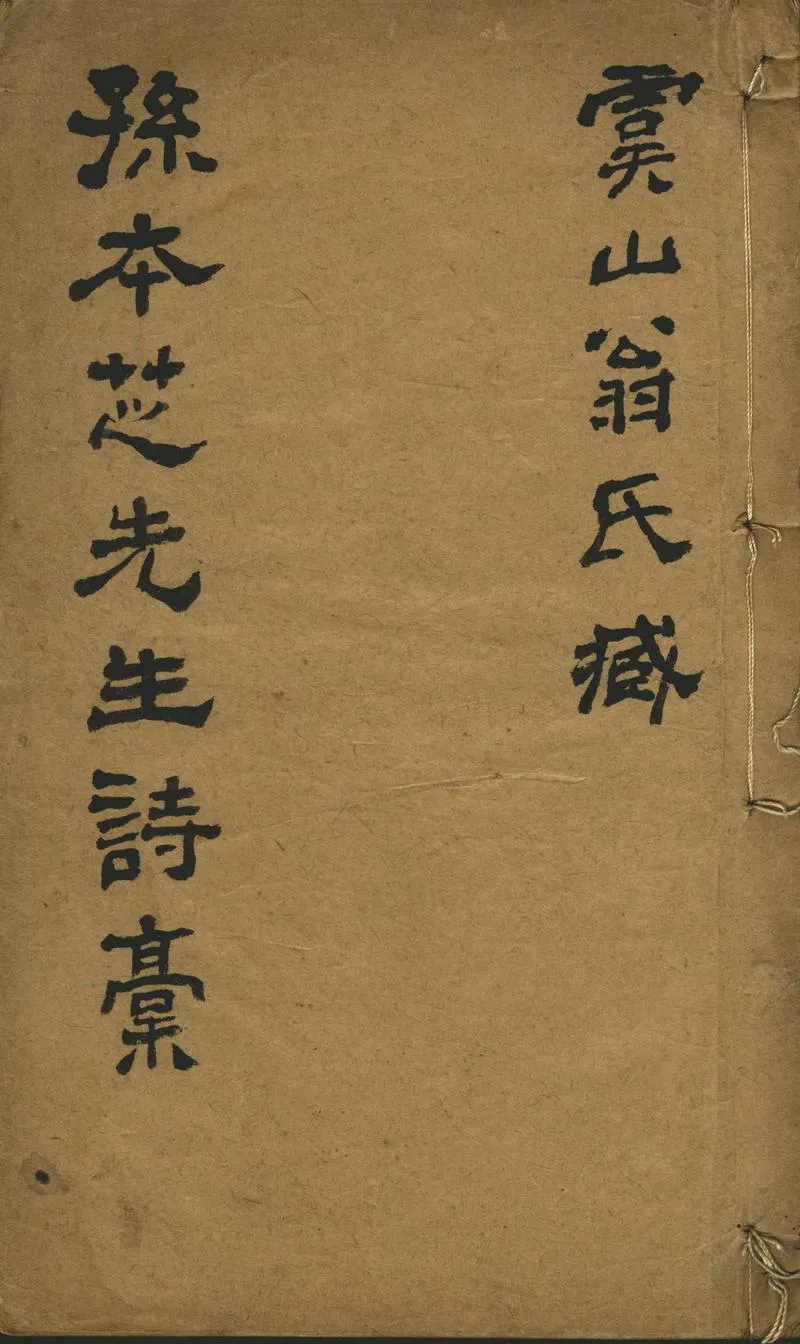 虞山翁氏臧
孫本芝先生詩稾